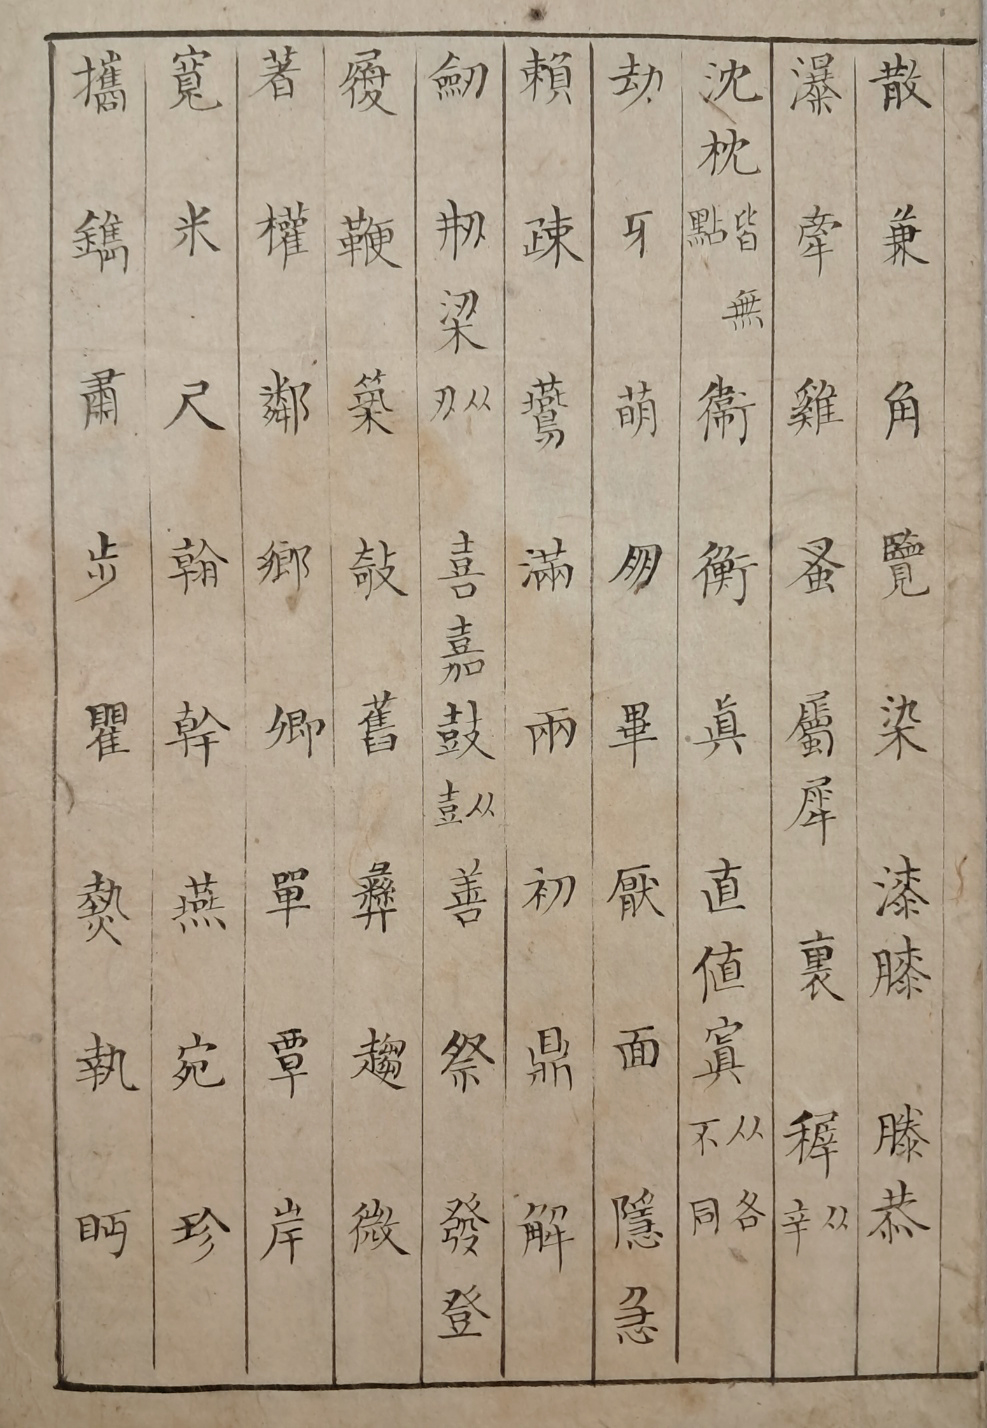 散兼角覽染漆膝滕恭
瀑牽雞蚤屬犀裏稺辛从
沈枕皆點無衞衡眞直値寘从不各同
劫牙萌朋畢厭面隱急
賴疎鷰滿兩初鼎解
劒刱梁刅从喜嘉鼓壴从善祭發登
履鞭築敲舊彝趨微
著權鄰鄉卿單覃岸
寬米尺翰幹燕宛珍
攜鐫肅步瞿熱執眄